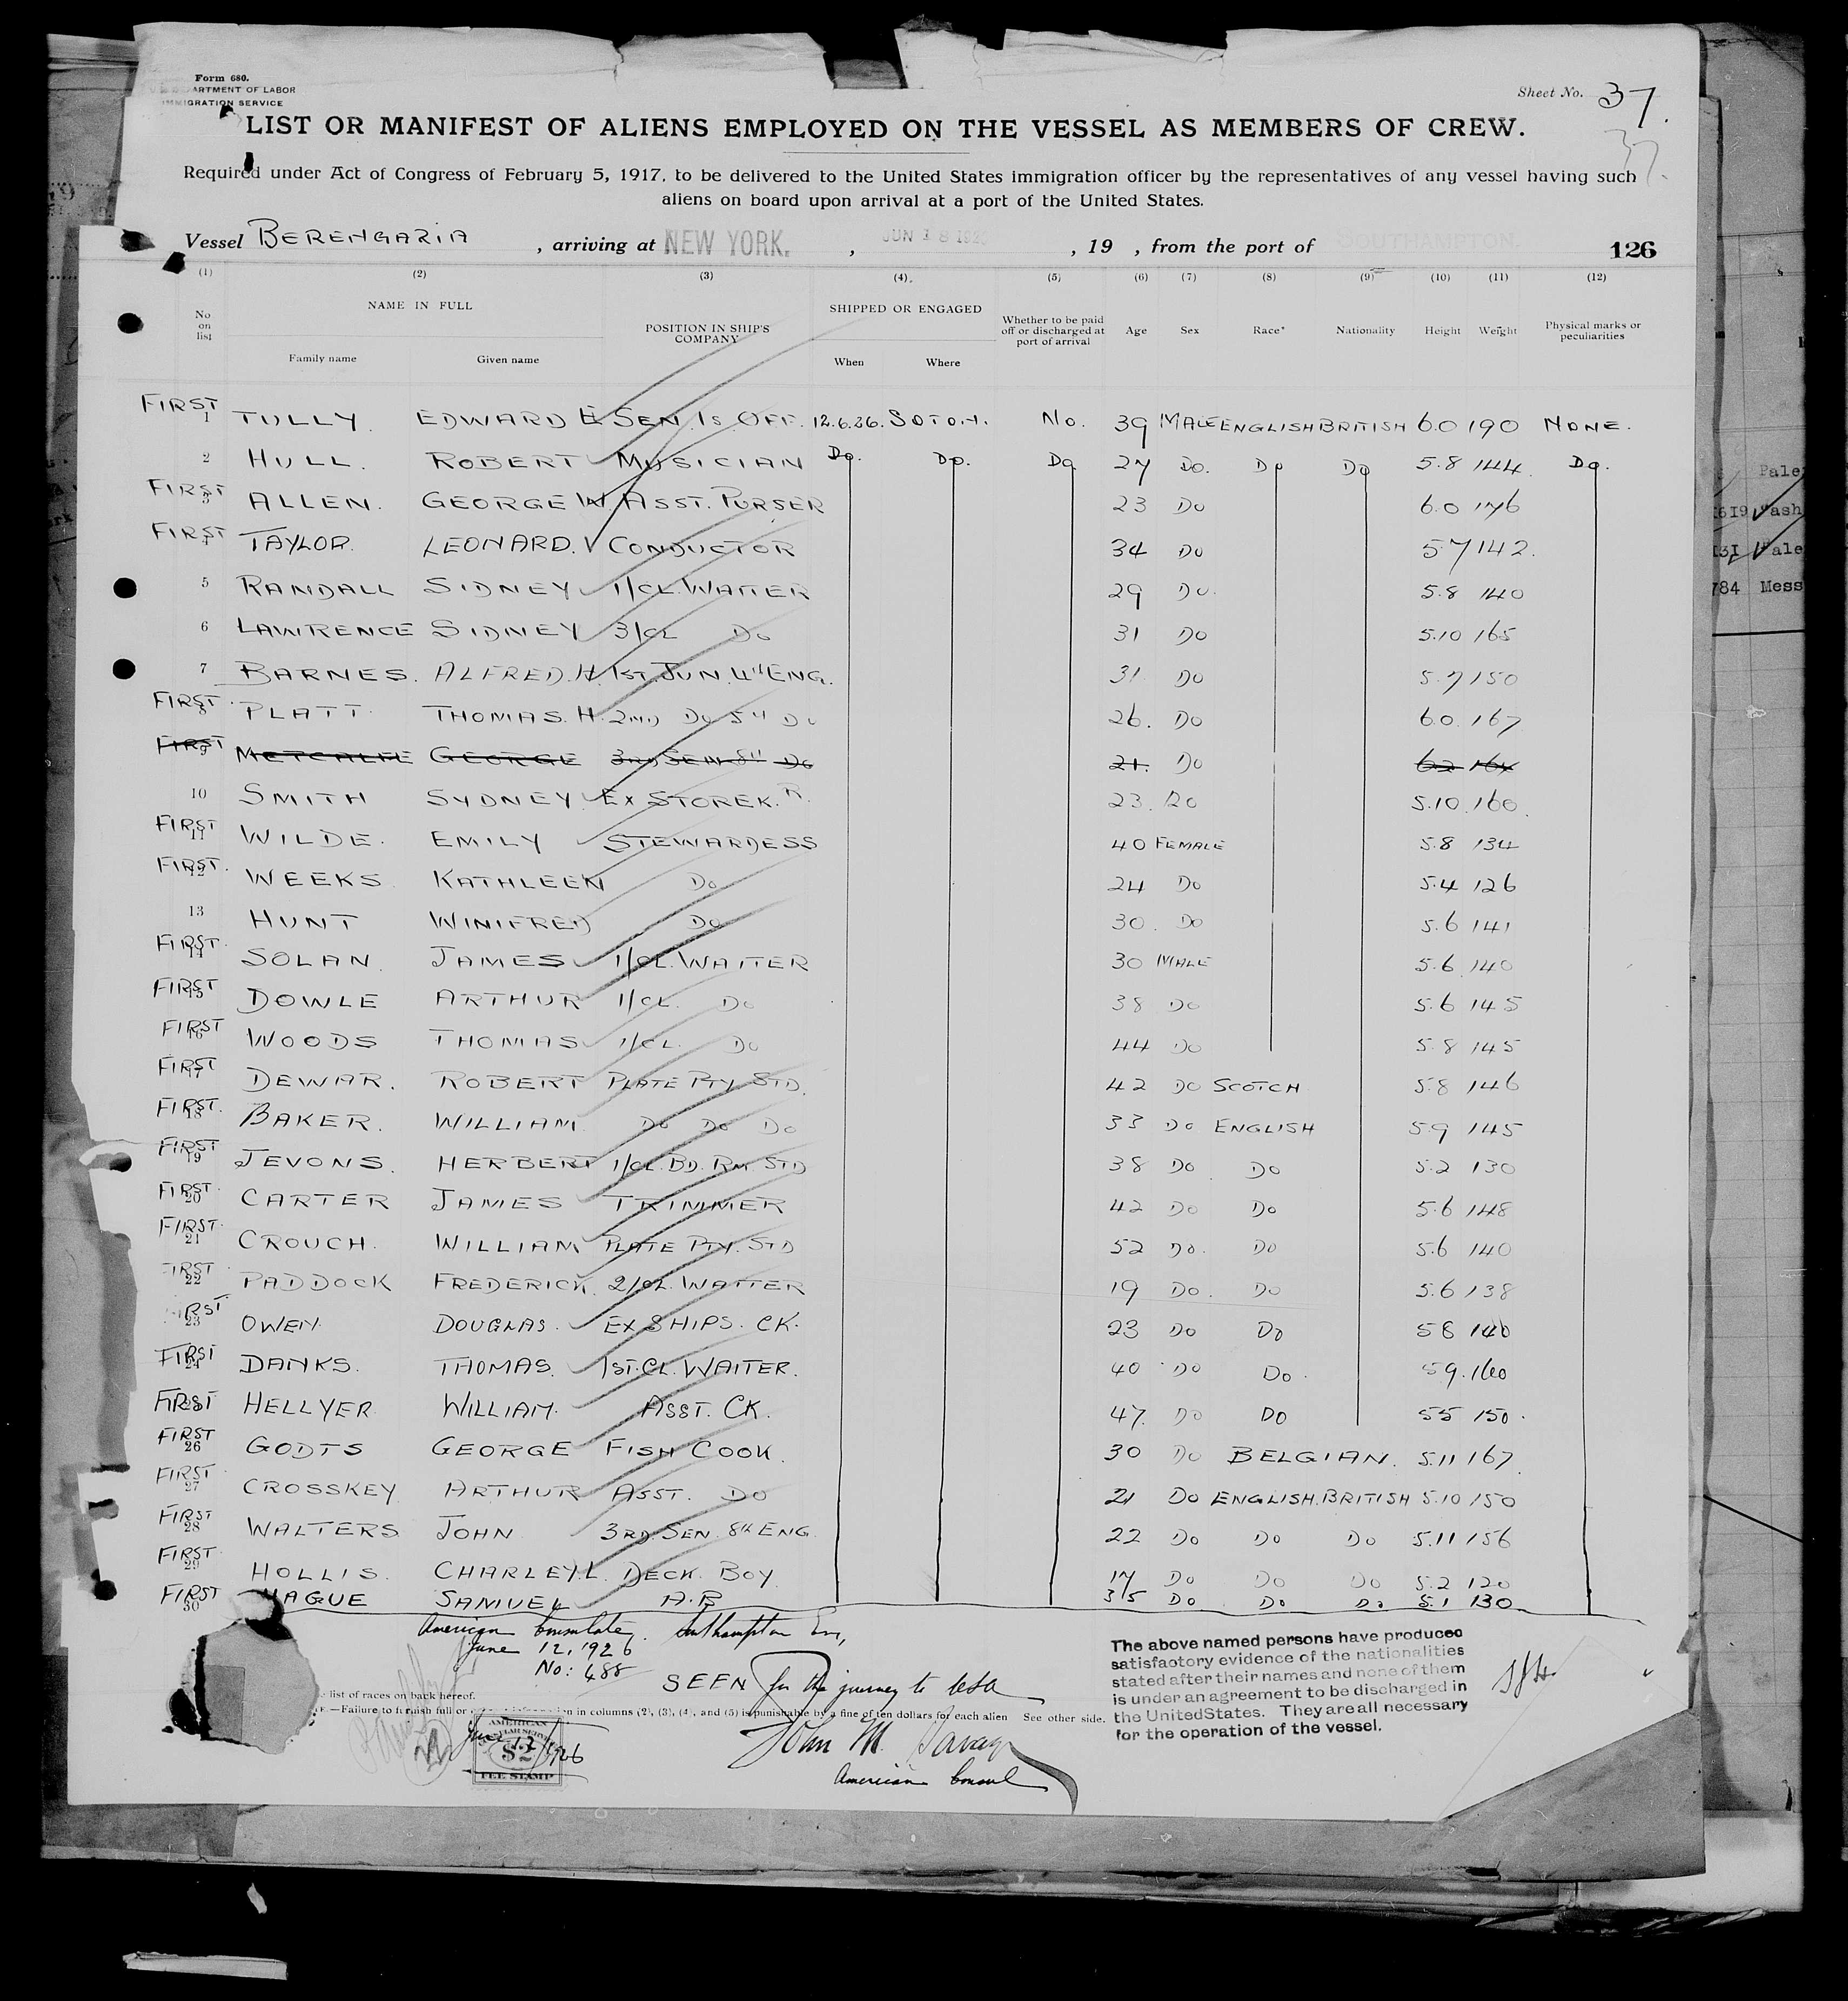 Form 680.
DEPARTMENT OF LABOR
IMMIGRATION SERVICE
Sheet No. 37.
37.
LIST OR MANIFEST OF ALIENS EMPLOYED ON THE VESSEL AS MEMBERS OF CREW.
Required under Act of Congress of February 5, 1917, to be delivered to the United States immigration officer by the representatives of any vessel having such
aliens on board upon arrival at a port of the United States.
Vessel BERENGARIA, arriving at NEW YORK., JUN 18 1926, 19 , from the port of SOUTHAMPTON. 126
(1) (2) (3) (4) (5) (6) (7) (8) (9) (10) (11) (12)
No on list NAME IN FULL Family name Given name POSITION IN SHIP'S COMPANY SHIPPED OR ENGAGED When Where Whether to be paid off or discharged at port of arrival Age Sex Race* Nationality Height Weight Physical marks or peculiarities
FIRST 1 TULLY. EDWARD E SEN. 1s OFF. 12.6.26. SOTON. No. 39 MALE ENGLISH BRITISH 6.0 190 NONE.
2 HULL. ROBERT MUSICIAN Do. Do. Do 27 Do. Do Do 5.8 144 Do.
FIRST 3 ALLEN. GEORGE W. ASST. PURSER 23 Do 6.0 176
FIRST 4 TAYLOR. LEONARD. CONDUCTOR 34 Do 5 7 142.
5 RANDALL SIDNEY 1/CL. WAITER 29 Do. 5.8 140
6 LAWRENCE SIDNEY 3/CL Do 31 Do 5.10 165
7 BARNES. ALFRED. H. 1ST. JUN. 4TH ENG. 31 Do 5.7 150
FIRST 8 PLATT THOMAS. H. 2ND Do 5TH Do 26. Do 6.0. 167
FIRST 9 METCALFE GEORGE 3RD SEN 8TH Do 21. Do 6.2 164
10 SMITH SYDNEY EX STOREK.R. 23. Do 5.10. 160.
FIRST 11 WILDE. EMILY STEWARDESS 40 FEMALE 5.8 134
FIRST. 12 WEEKS KATHLEEN Do 24 Do 5.4 126
13 HUNT WINIFRED Do 30. Do 5.6 141
FIRST. 14 SOLAN JAMES 1/CL. WAITER 30 MALE 5.6 140
FIRST 15 DOWLE ARTHUR 1/CL. Do 38 Do 5.6 145
FIRST 16 WOODS THOMAS 1/CL. Do 44 Do 5.8 145
FIRST 17 DEWAR. ROBERT PLATE PTY STD. 42 Do SCOTCH 5.8 146
FIRST. 18 BAKER. WILLIAM Do Do Do 33 Do ENGLISH 5.9 145
FIRST 19 JEVONS. HERBERT 1/CL. BD. RM STD 38 Do Do 5.2 130
FIRST. 20 CARTER JAMES TRIMMER 42 Do Do 5.6 148
FIRST. 21 CROUCH. WILLIAM PLATE PTY. STD 52 Do. Do 5.6 140
FIRST 22 PADDOCK FREDERICK. 2/CL. WAITER 19 Do. Do 5.6 138
FIRST 23 OWEN. DOUGLAS. EX SHIPS. CK. 23 Do Do 5 8 140
FIRST 24 DANKS. THOMAS. 1ST. CL. WAITER. 40 Do Do. 5 9. 160
FIRST 25 HELLYER. WILLIAM. ASST. CK. 47. Do Do 5 5 150.
FIRST 26 GODTS GEORGE FISH COOK. 30 Do BELGIAN. 5.11 167.
FIRST 27 CROSSKEY ARTHUR ASST. Do 21 Do ENGLISH. BRITISH 5.10 150
FIRST 28 WALTERS JOHN 3RD. SEN. 8TH ENG. 22 Do Do Do 5.11 156
FIRST. 29 HOLLIS. CHARLEY. L. DECK. BOY. 17 Do Do Do 5.2 120
FIRST 30 HAGUE SAMUEL A.B 35 Do Do Do 5.1 130
American Consulate, Southampton Eng,
June 12, 1926
No: 488
SEEN for the journey to USA
The above named persons have produced
satisfactory evidence of the nationalities
stated after their names and none of them
is under an agreement to be discharged in
the United States. They are all necessary
for the operation of the vessel.
list of races on back hereof.
—Failure to furnish full or in columns (2), (3), (4), and (5) is punishable by a fine of ten dollars for each alien See other side.
AMERICAN
$2
FEE STAMP
June 12/1926
John M. Savage
American Consul